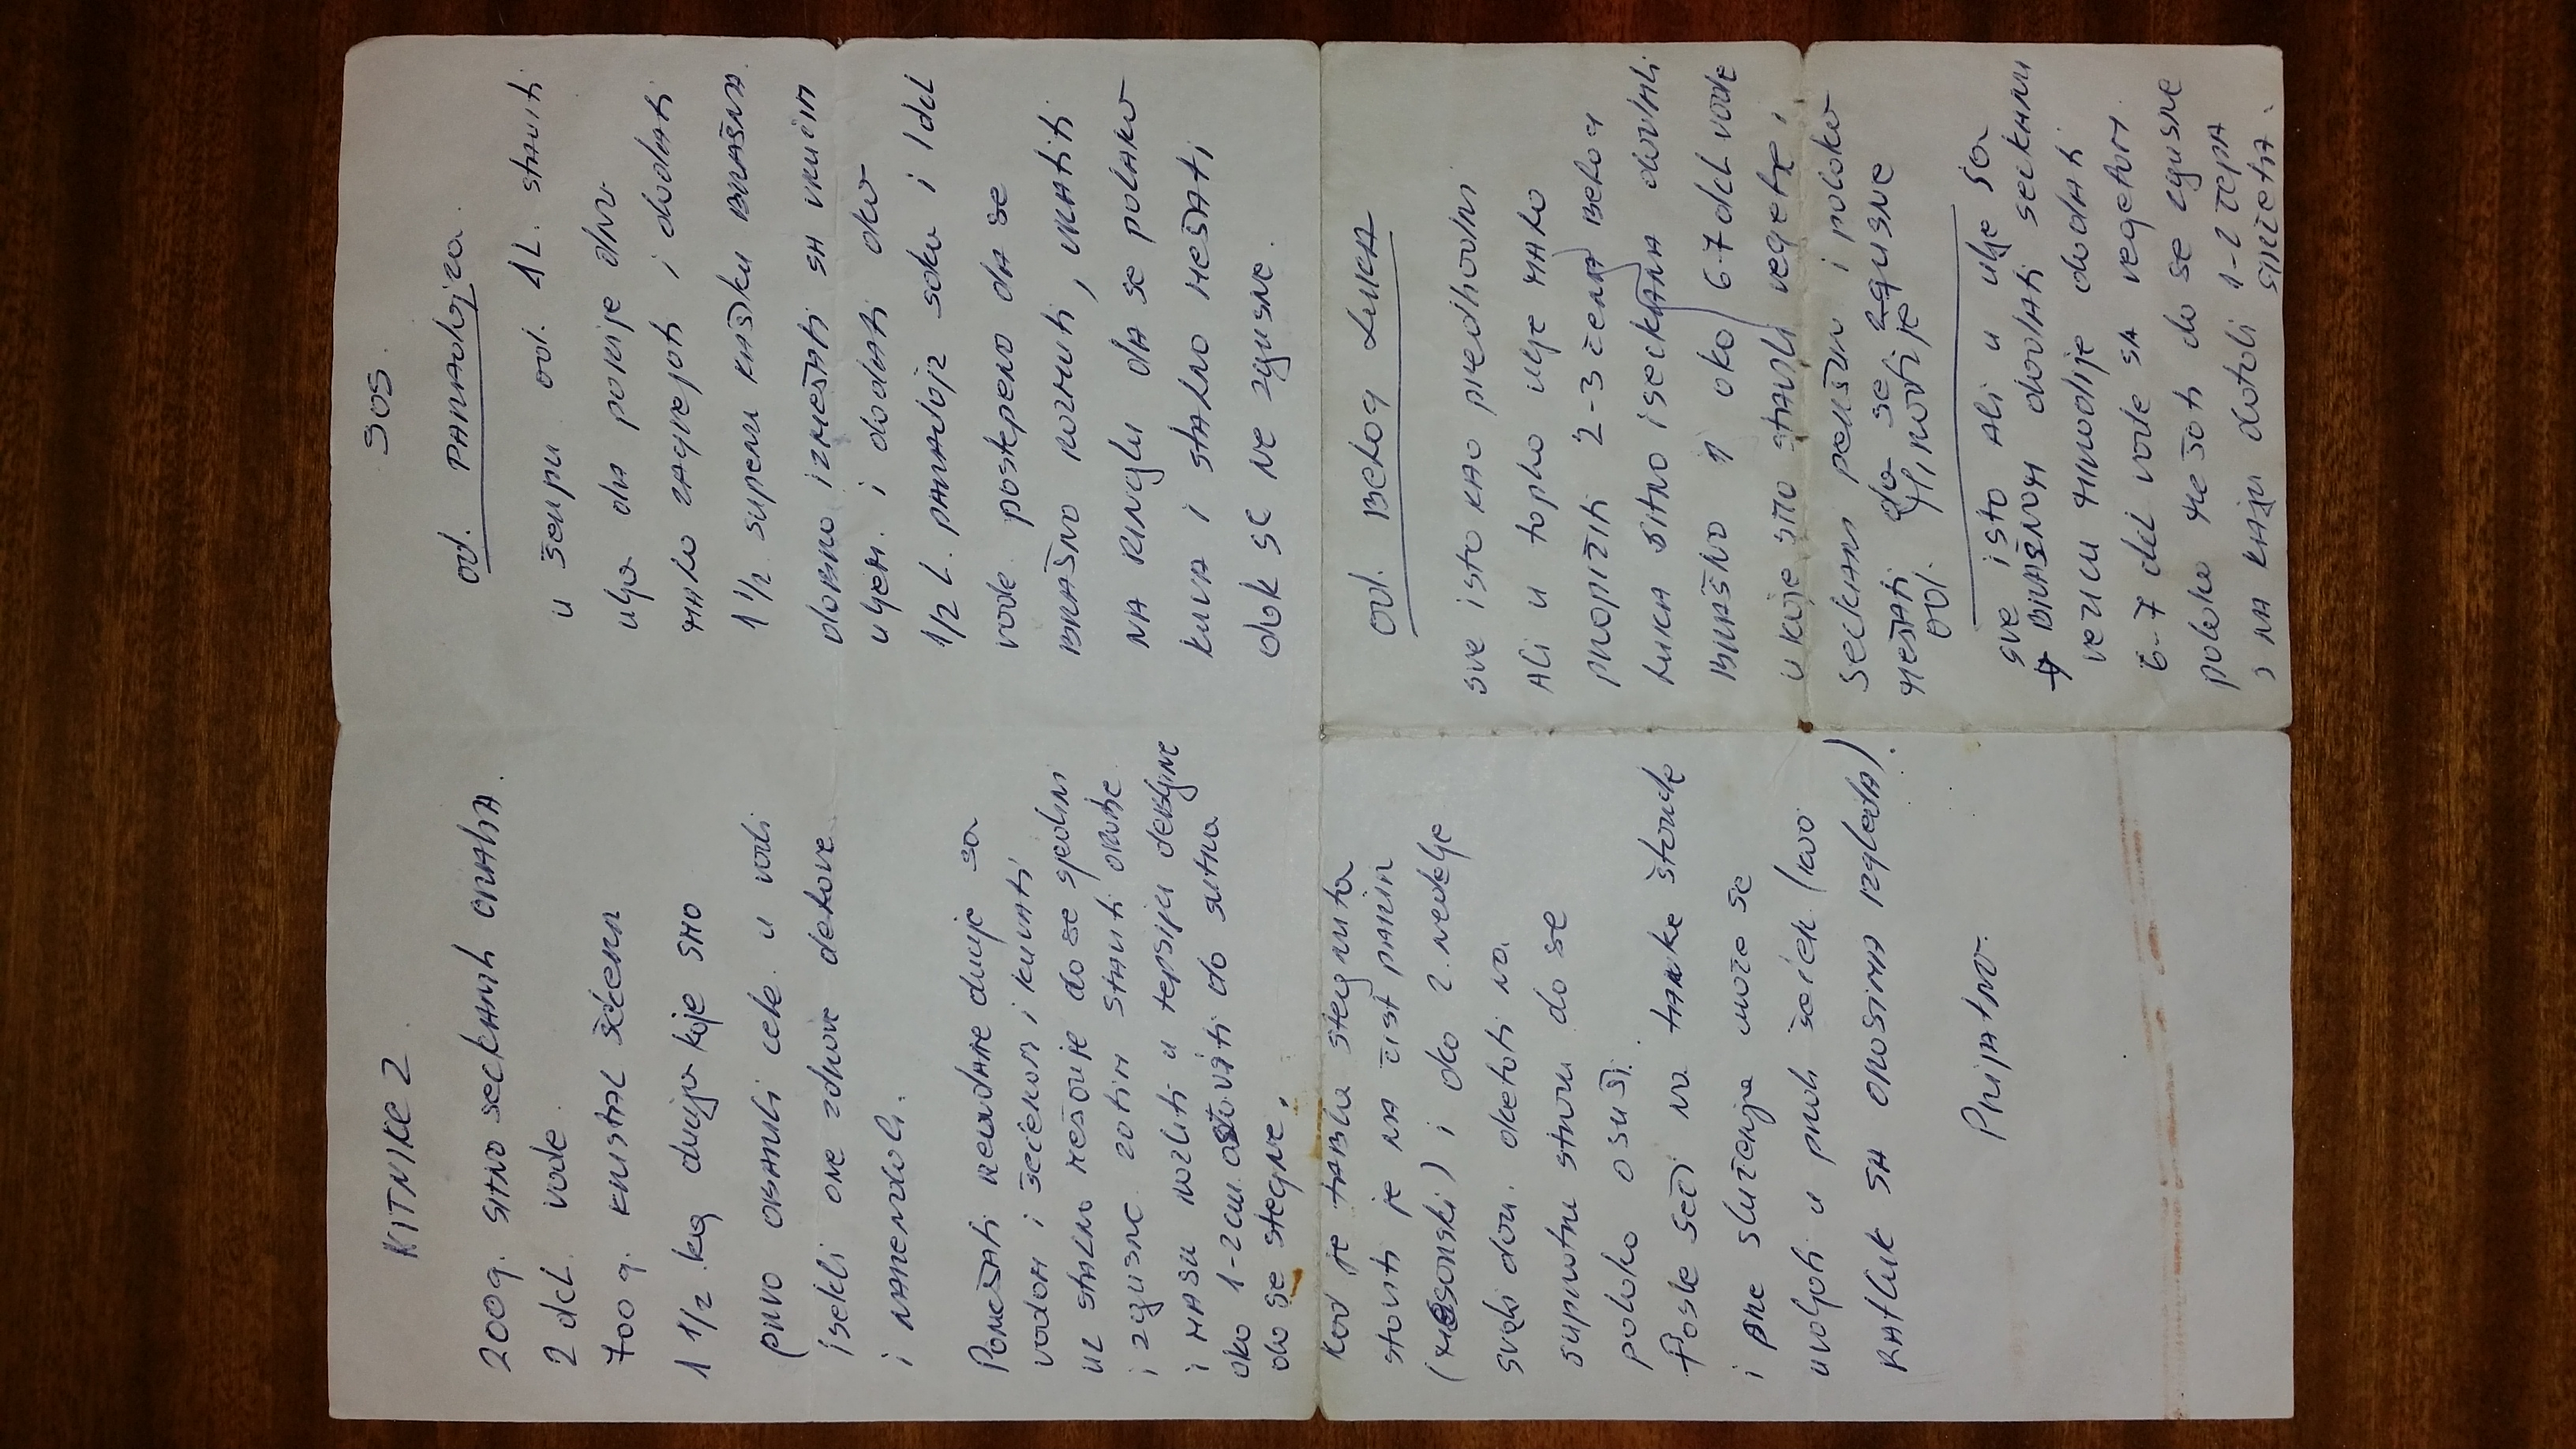 KITNIKEZ.
200 g. SITNO SECKANIH ORAHA.
2 dcl. vode.
700 g. KRISTAL ŠEĆERA
1 1/2 kg dunja koje SMO
prvo OBARILI cele u vodi
isekli one zdrave delove
i NARENDALI.
POMEŠATI RENDANE dunje sa
vodom i šećerom i kuvati
uz STALNO MEŠANJE da se sjedini
i zgusne zatim STAVITI ORAHE
i MASU razliti u tepsiju debljine
oko 1-2 cm ostaviti do sutra
da se stegne.
Kad je TABLA stegnuta
staviti je NA čist PAPIR
(masonski) i oko 2. nedelje
svaki dan. okretati na
suprotnu stranu da se
polako osuši.
Posle seći na tanke štangle
i pre služenja može se
uvaljati u prah šećer (kao
RATLUK SA ORASIMA izgleda).
Prijatno.
SOS.
od. PARAdajza.
u šerpu od. 1L. staviti
ulja da pokrije dno
MALO zagrejati i dodati
1 1/2 supenu KAŠIKU BRAŠNA.
dobro izmešati SA vrućim
uljem. i dodati oko
1/2 L. PARAdajz soka i 1 dcl
vode postepeno da se
BRAŠNO razmuti, vratiti
NA RINGLU da se polako
kuva i STALNO MEŠATI
dok se ne zgusne.
od. Belog LUKA
sve isto kao predhodni
Ali u toplo ulje MALO
propržiti 2-3 čena Belog
LUKA SITNO iseckana dodati
BRAŠNO i oko 6-7 dcl vode
u koje smo stavili vegete i
seckani peršun i polako
MEŠATI da se zgusne
od. Mirođije
sve isto Ali u ulje sa
BRAŠNOM dodati seckanu
vezicu Mirođije dodati
6-7 dcl vode SA vegetom.
polako Mešati da se zgusne
i NA KRAJU dodati 1-2 čepa
sirćeta.